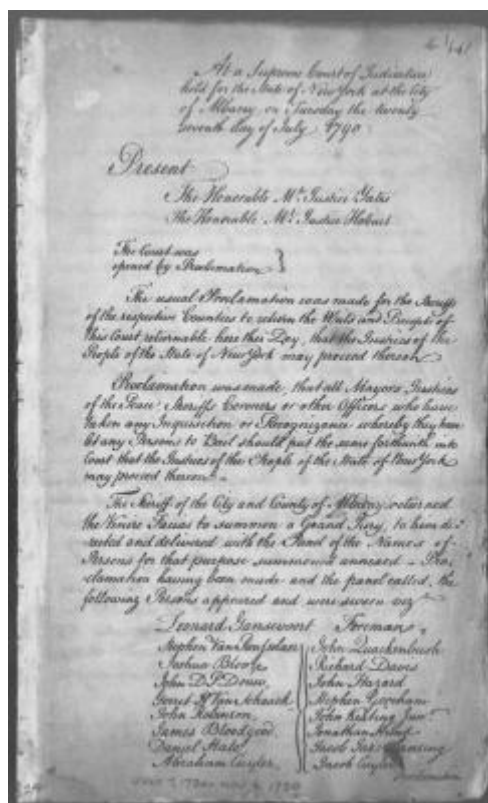 At a Supreme Court of Judicature
held for the State of New York at the City
of Albany on Tuesday the twenty
seventh day of July 1790
Present
The Honorable Mr. Justice Yates
The Honorable Mr. Justice Hobart
The Court was
opened by Proclamation
The usual Proclamation was made for the Sheriffs
of the respective Counties to return the Writs and Precepts of
this Court returnable here this Day, that the Justices of the
People of the State of New York may proceed thereon
Proclamation was made, that all Mayors Justices
of the Peace Sheriffs Coroners or other Officers who have
taken any Inquisition or Recognizance whereby they have
let any Persons to Bail should put the same forthwith into
Court that the Justices of the People of the State of New York
may proceed thereon
The Sheriff of the City and County of Albany returned
the Venire Facias to summon a Grand Jury, to him di-
rected and delivered with the Panel of the Names of
Persons for that purpose summoned annexed - Pro-
clamation having been made and the panel called, the
following Persons appeared and were sworn viz
Leonard Gansevoort Foreman
Stephen Van Rensselaer John Quackenbush
Joshua Bloore Richard Davis
John D. P. Douw John Hazard
Gerret Van Schaick Stephen Gorham
John Robinson John Keating Junr.
James Bloodgood Jonathan
Daniel Hale Jacob Lansing
Abraham Cuyler Jacob Cuyler